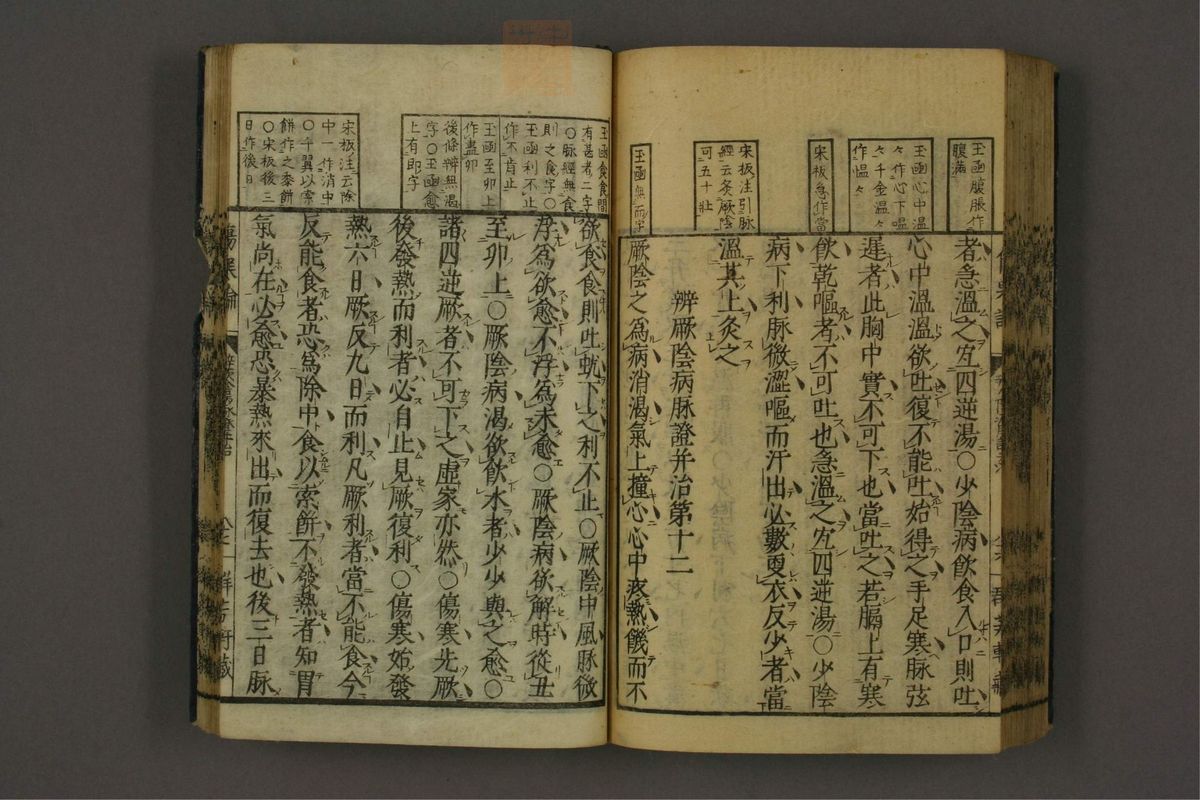 玉函腹脹作
腹滿
玉函心中溫
々作心下嗢
々千金溫々
作愠々
宋板急作當
宋板注引脉
經云灸厥陰
可五十壯
玉函無而字
者急溫之宜四逆湯○少陰病飲食入口則吐
心中溫溫欲吐復不能吐始得之手足寒脉弦
遲者此胸中實不可下也當吐之若膈上有寒
飲乾嘔者不可吐也急溫之宜四逆湯○少陰
病下利脉微澀嘔而汗出必數更衣反少者當
溫其上灸之
辨厥陰病脉證并治第十二
厥陰之爲病消渴氣上撞心心中疼熱饑而不
玉函食食間
有甚者二字
○脉經無食
則之食字○
玉函利不止
作不肯止
玉函至卯上
作盡卯
後條辨無渴
字○玉函愈
上有即字
宋板注云除
中一作消中
○千翼以索
餅作之黍餅
○宋板後三
日作後日
欲食食則吐蚘下之利不止○厥陰中風脉微
浮爲欲愈不浮爲未愈○厥陰病欲解時從丑
至卯上○厥陰病渴欲飲水者少少與之愈○
諸四逆厥者不可下之虛家亦然○傷寒先厥
後發熱而利者必自止見厥復利○傷寒始發
熱六日厥反九日而利凡厥利者當不能食今
反能食者恐爲除中食以索餅不發熱者知胃
氣尚在必愈恐暴熱來出而復去也後三日脉
傷寒論